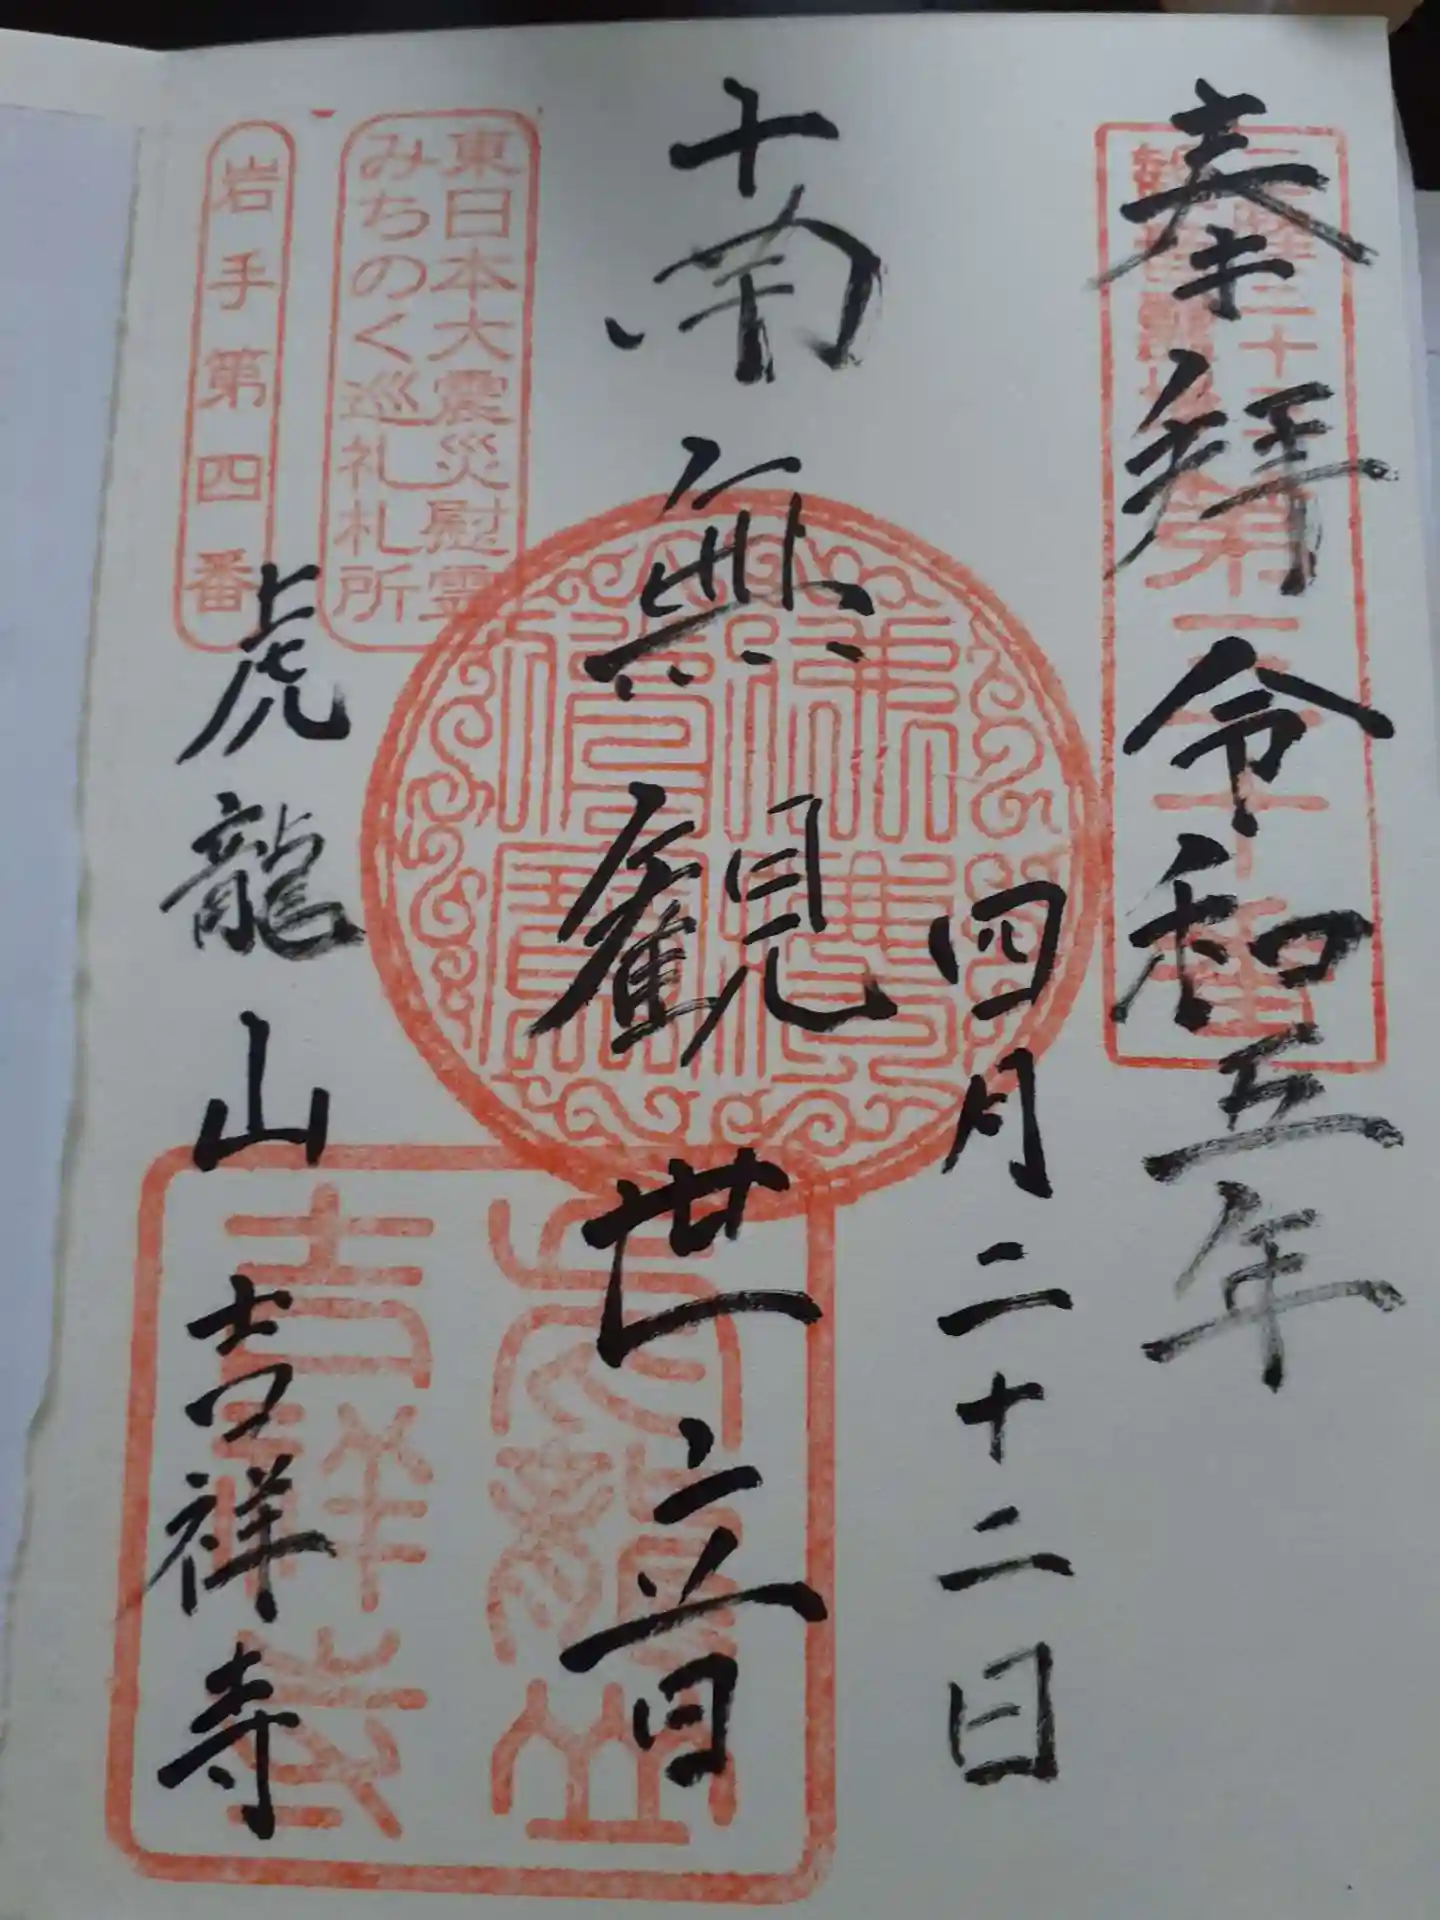 奉拝 令和五年
四月二十二日
南無觀世音
東日本大震災慰霊
みちのく巡礼札所
岩手第四番
虎龍山吉祥寺